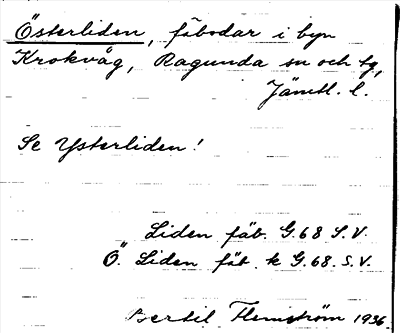 Österliden, fäbodar i byn
Krokvåg, Ragunda sn och tg,
Jämtl. l.
Se Ysterliden!
Liden fäb. G.68 S.V.
Ö. Liden fäb. k G.68. S.V.
Bertil Flemström 1936.